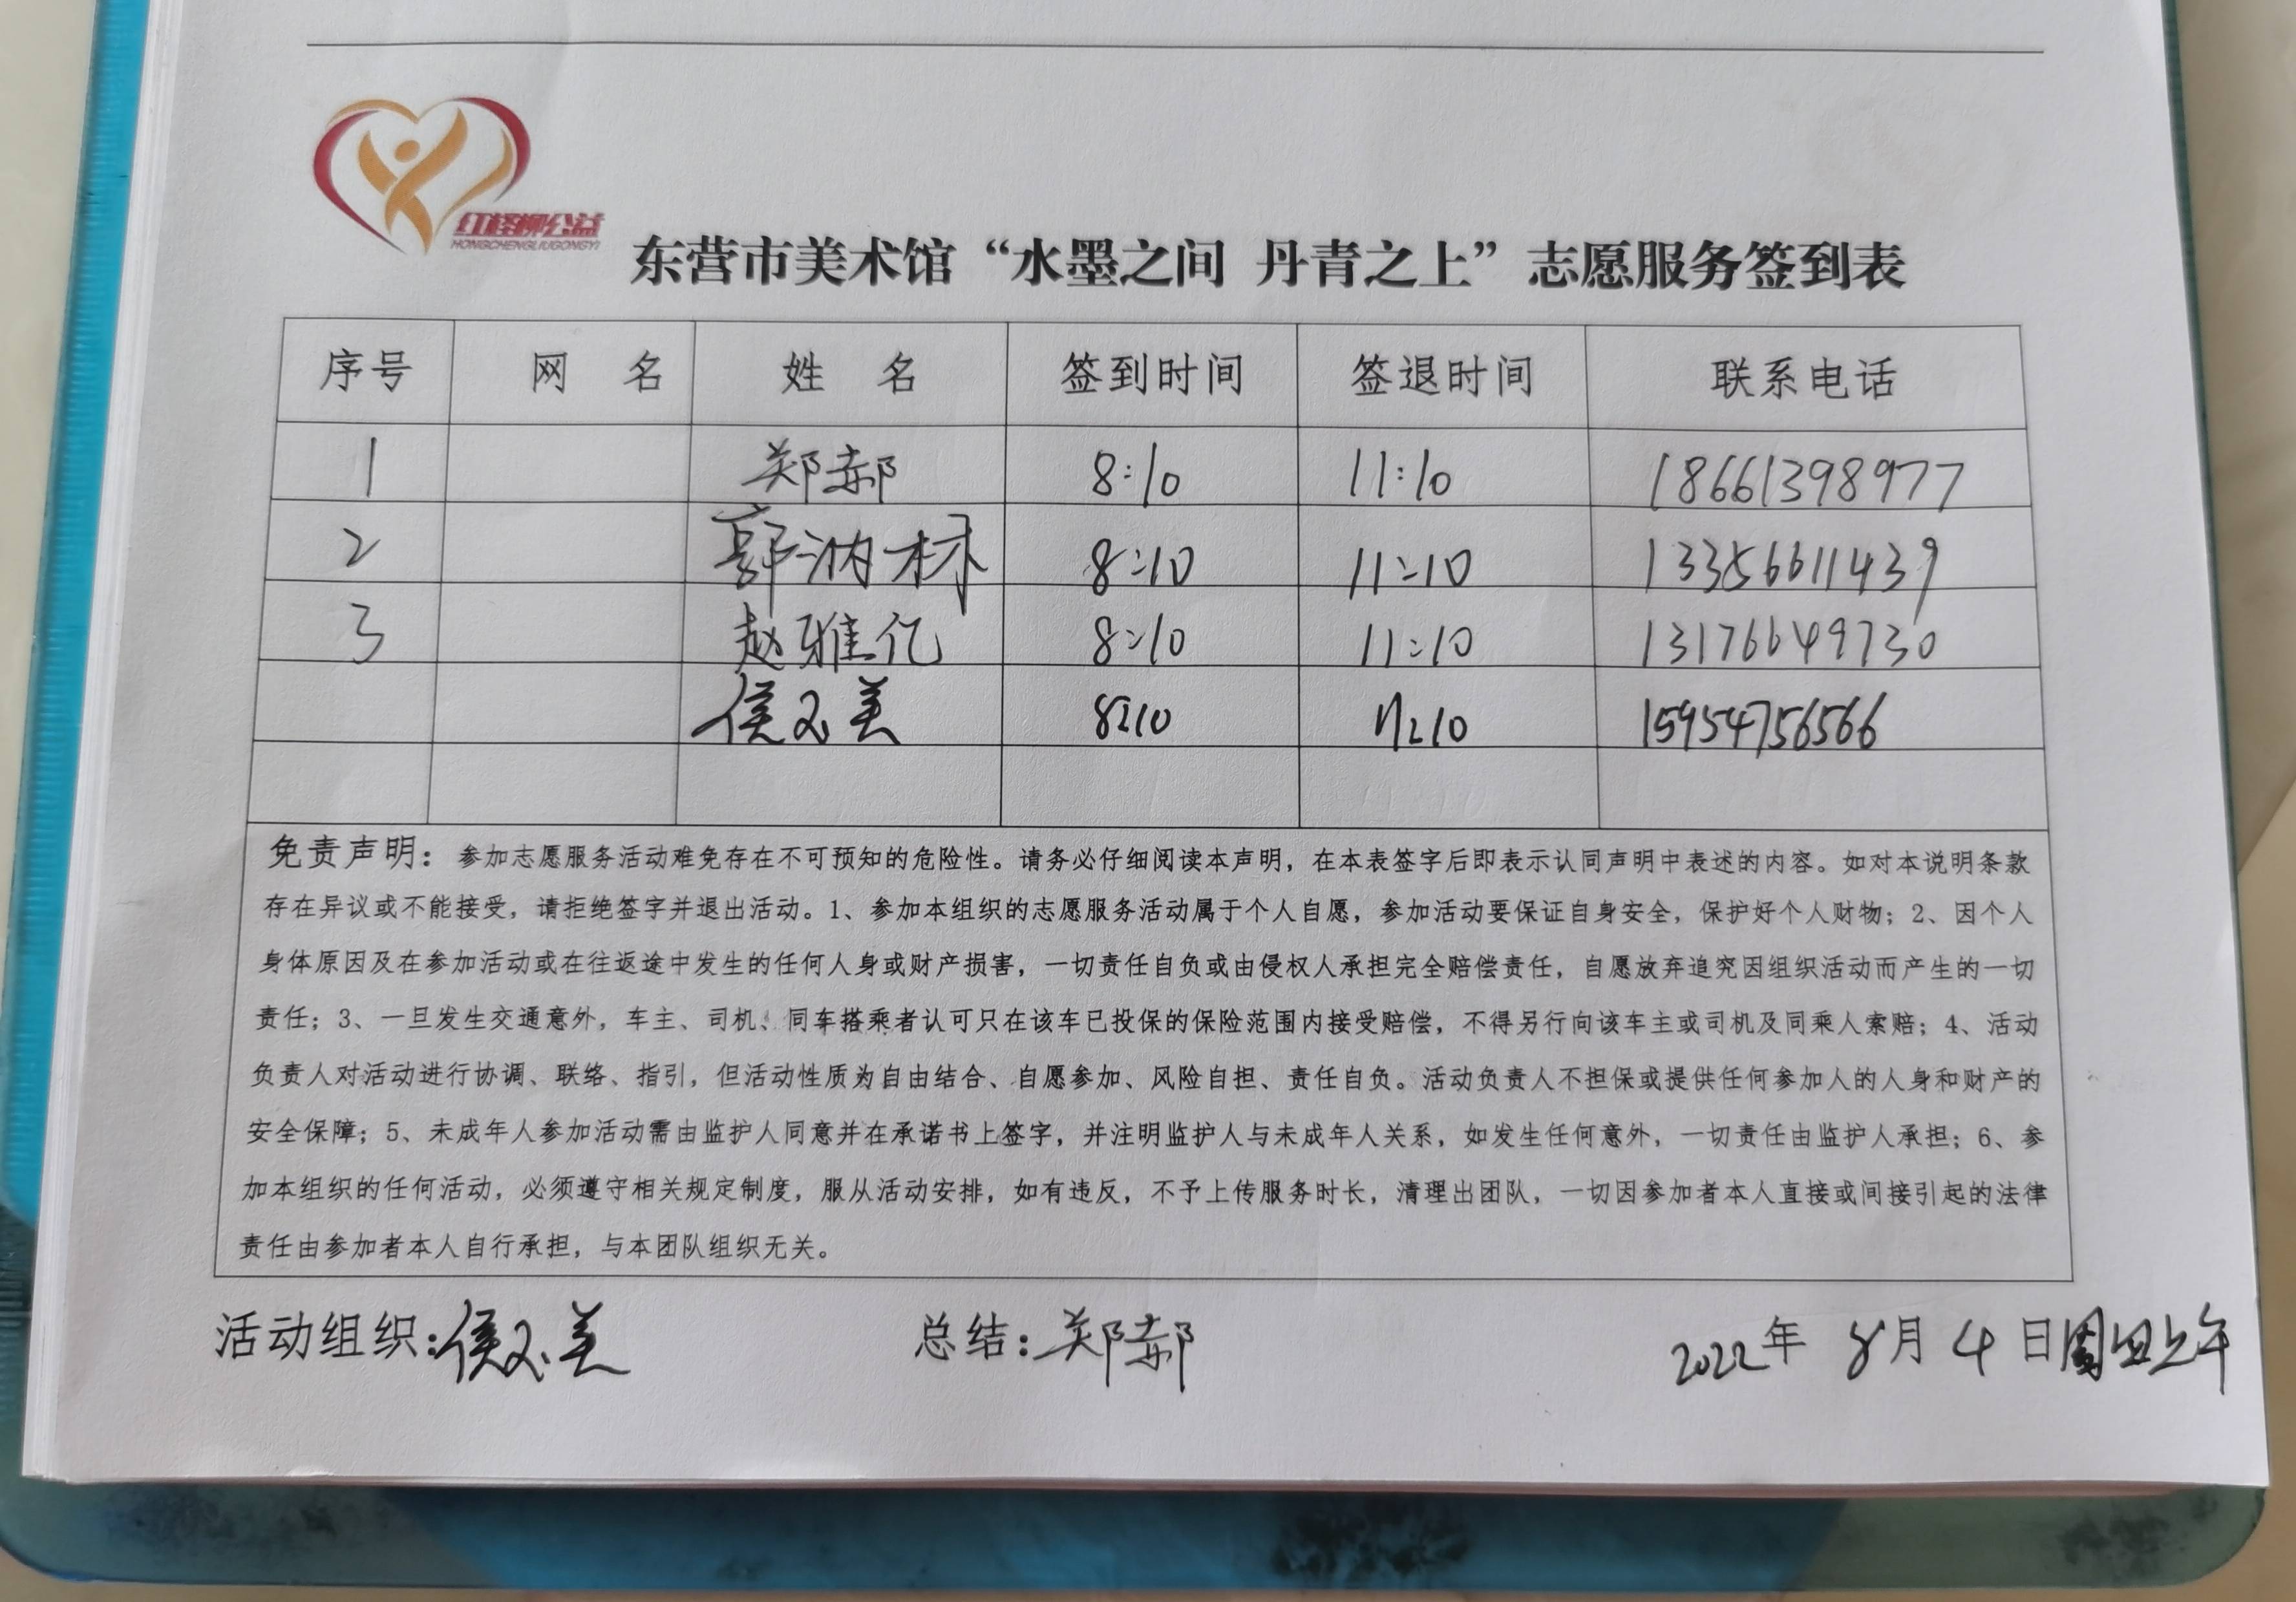 红柽柳公益
HONGCHENGLIUGONGYI
东营市美术馆“水墨之间 丹青之上”志愿服务签到表
序号 网 名 姓 名 签到时间 签退时间 联系电话
1 郑郝 8:10 11:10 18661398977
2 郭汭林 8:10 11:10 13356611439
3 赵雅亿 8:10 11:10 13176649730
侯玉美 8:10 11:10 15954756566
免责声明：参加志愿服务活动难免存在不可预知的危险性。请务必仔细阅读本声明，在本表签字后即表示认同声明中表述的内容。如对本说明条款
存在异议或不能接受，请拒绝签字并退出活动。1、参加本组织的志愿服务活动属于个人自愿，参加活动要保证自身安全，保护好个人财物；2、因个人
身体原因及在参加活动或在往返途中发生的任何人身或财产损害，一切责任自负或由侵权人承担完全赔偿责任，自愿放弃追究因组织活动而产生的一切
责任；3、一旦发生交通意外，车主、司机、同车搭乘者认可只在该车已投保的保险范围内接受赔偿，不得另行向该车主或司机及同乘人索赔；4、活动
负责人对活动进行协调、联络、指引，但活动性质为自由结合、自愿参加、风险自担、责任自负。活动负责人不担保或提供任何参加人的人身和财产的
安全保障；5、未成年人参加活动需由监护人同意并在承诺书上签字，并注明监护人与未成年人关系，如发生任何意外，一切责任由监护人承担；6、参
加本组织的任何活动，必须遵守相关规定制度，服从活动安排，如有违反，不予上传服务时长，清理出团队，一切因参加者本人直接或间接引起的法律
责任由参加者本人自行承担，与本团队组织无关。
活动组织：侯玉美 总结：郑郝 2022年 8月 4日周四上午